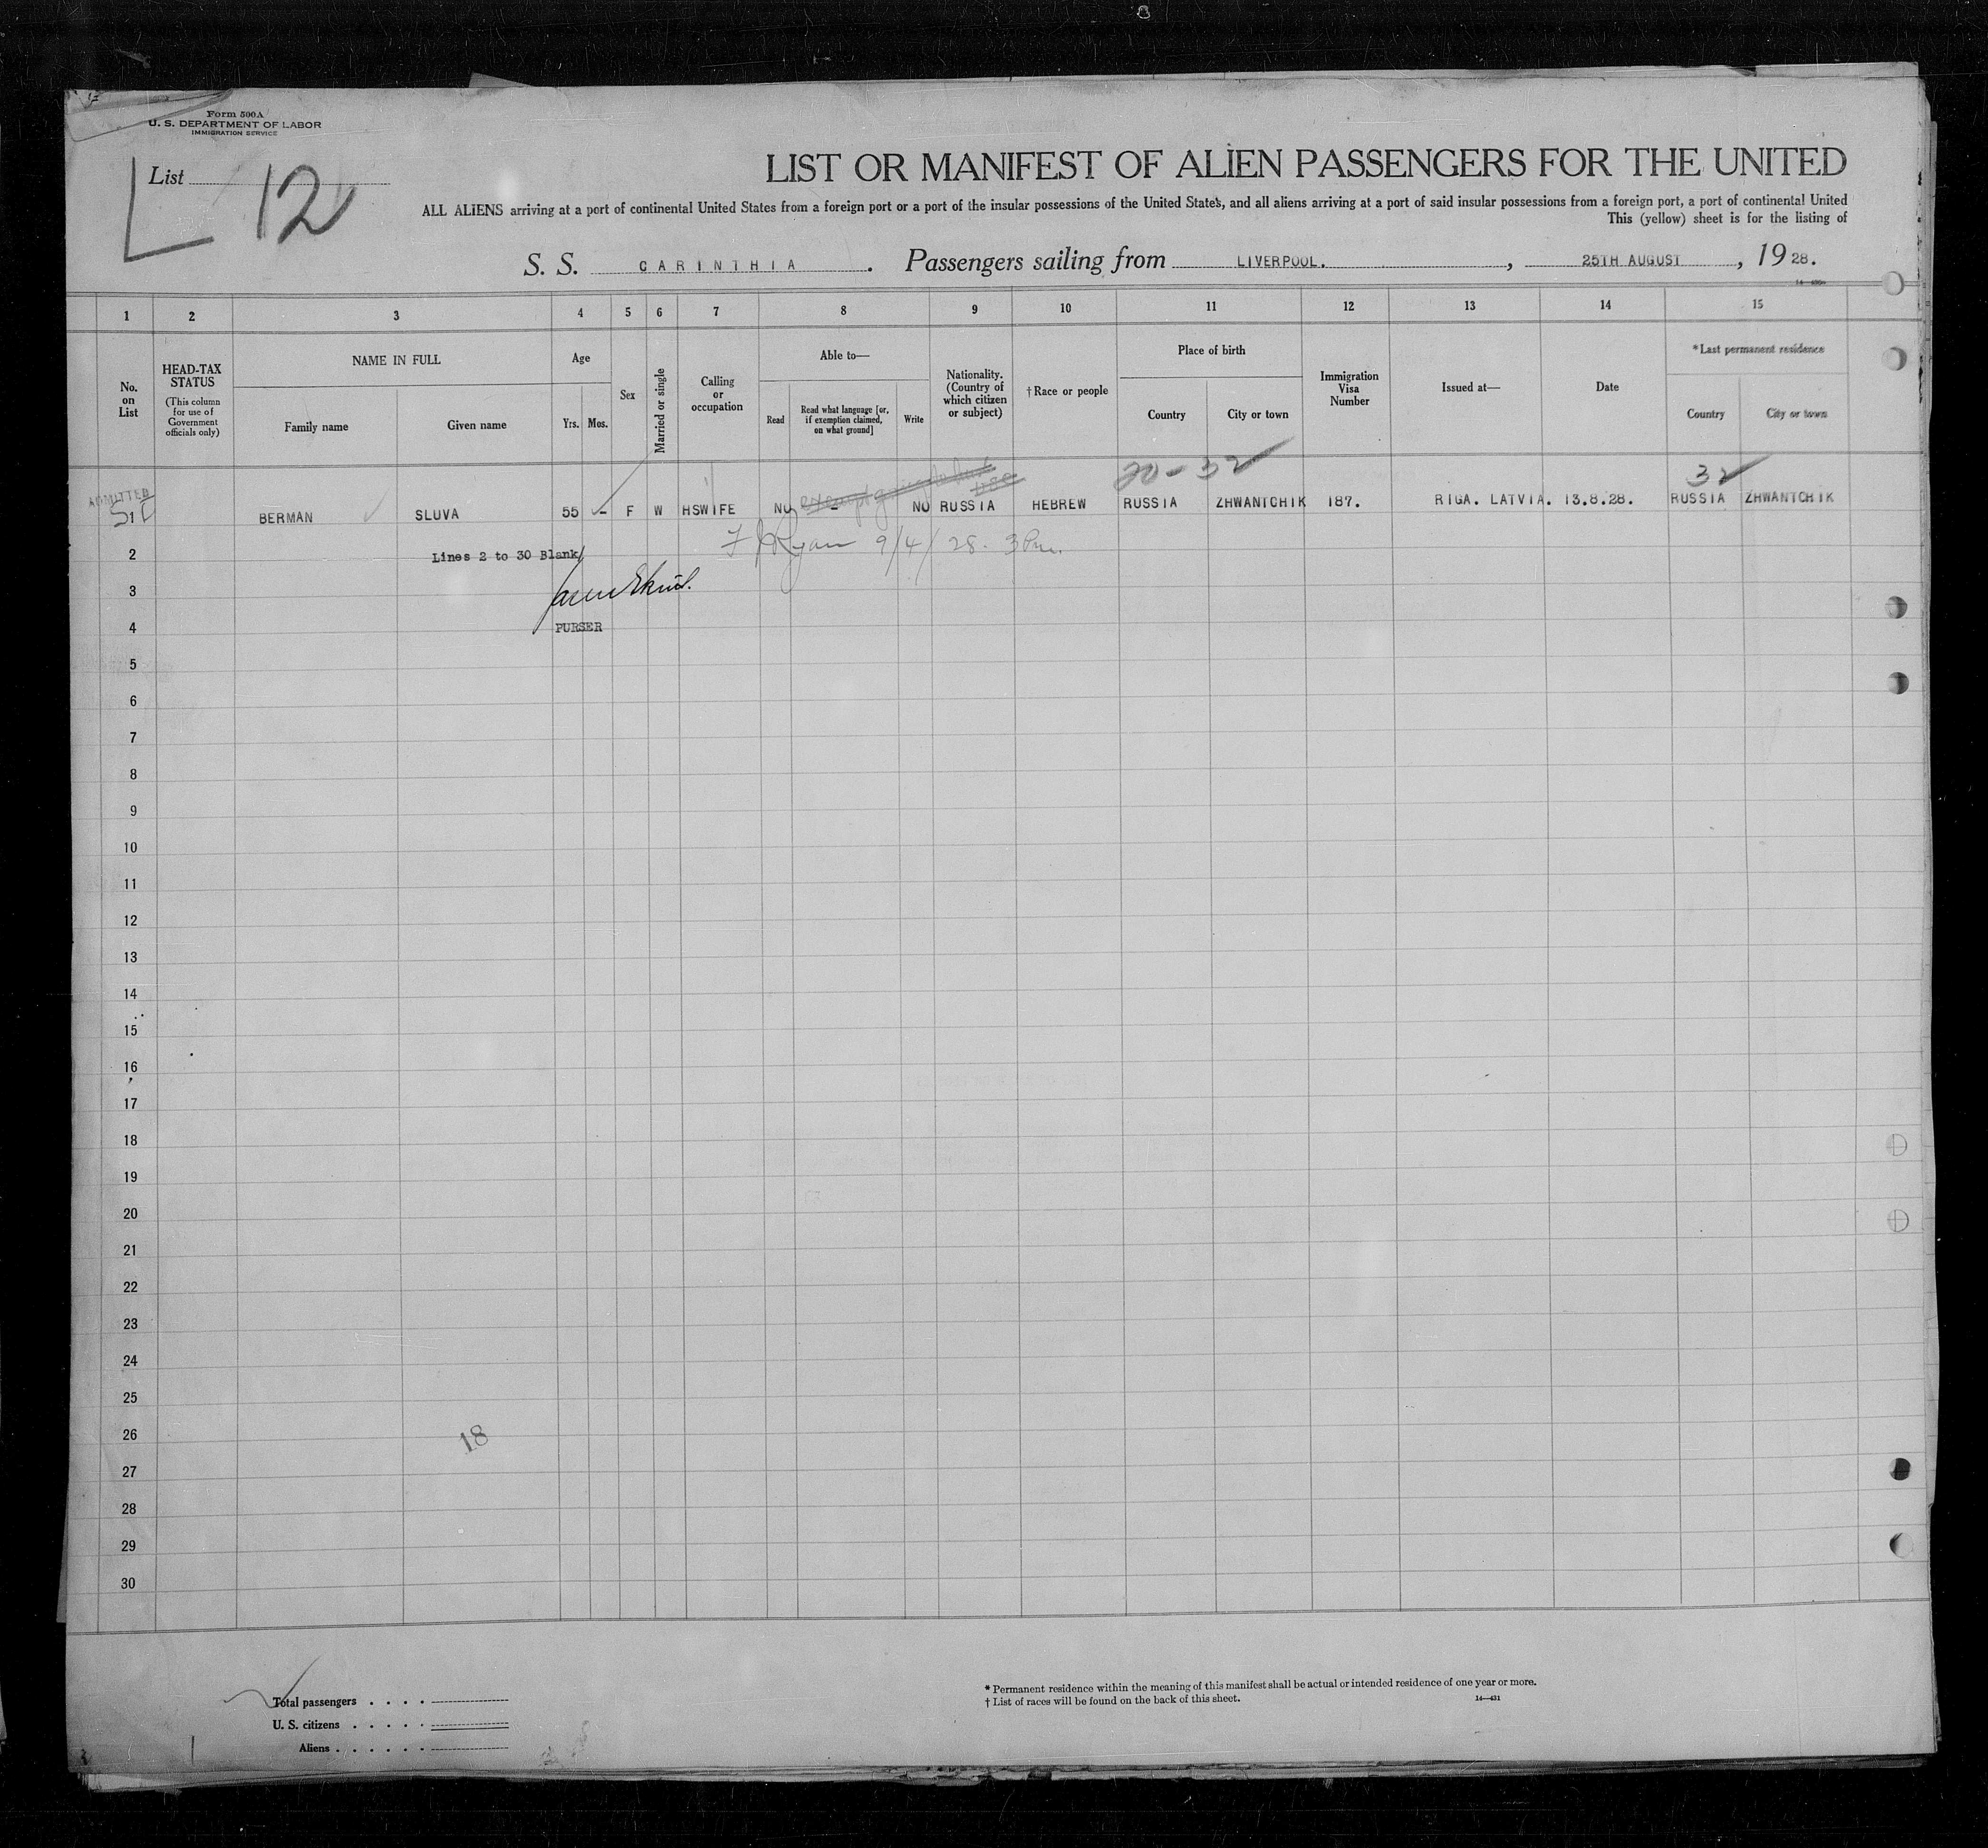 Form 500A
U. S. DEPARTMENT OF LABOR
IMMIGRATION SERVICE
List 12
LIST OR MANIFEST OF ALIEN PASSENGERS FOR THE UNITED
ALL ALIENS arriving at a port of continental United States from a foreign port or a port of the insular possessions of the United States, and all aliens arriving at a port of said insular possessions from a foreign port, a port of continental United
This (yellow) sheet is for the listing of
S. S. CARINTHIA. Passengers sailing from LIVERPOOL. , 25TH AUGUST , 19 28.
1 2 3 4 5 6 7 8 9 10 11 12 13 14 15
No. on List
HEAD-TAX STATUS
(This column for use of Government officials only)
NAME IN FULL
Family name Given name
Age
Yrs. Mos.
Sex
Married or single
Calling or occupation
Able to—
Read
Read what language [or, if exemption claimed, on what ground]
Write
Nationality. (Country of which citizen or subject)
†Race or people
Place of birth
Country City or town
Immigration Visa Number
Issued at—
Date
*Last permanent residence
Country City or town
20-32 32
ADMITTED
1 BERMAN SLUVA 55 - F W HSWIFE NO - NO RUSSIA HEBREW RUSSIA ZHWANTCHIK 187. RIGA. LATVIA. 13.8.28. RUSSIA ZHWANTCHIK
2 Lines 2 to 30 Blank F J Ryan 9/4/28. 3 Pm.
3
4 PURSER
5
6
7
8
9
10
11
12
13
14
15
16
17
18
19
20
21
22
23
24
25
26 18
27
28
29
30
Total passengers . . . .
U. S. citizens . . . . .
Aliens . . . . . .
* Permanent residence within the meaning of this manifest shall be actual or intended residence of one year or more.
† List of races will be found on the back of this sheet. 14—431